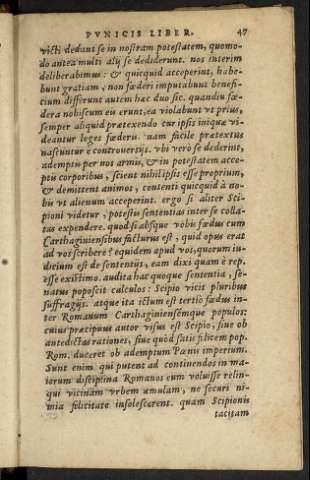 PVNICIS LIBER. 47
victi dedant se in nostram potestatem, quomo-
do antea multi alij se dediderunt. nos interim
deliberabimus: & quicquid acceperint, habe-
bunt gratiam, non fœderi imputabunt benefi-
cium differunt autem hæc duo sic. quandiu fœ-
dera nobiscum eis erunt, ea violabunt vt prius,
semper aliquid prætexendo cur ipsis iniqua vi-
deantur leges fœderis. nam facile prætextus
nascuntur è controuersijs. vbi verò se dederint,
ademptis per nos armis, & in potestatem acce-
ptis corporibus, scient nihil ipsis esse proprium,
& demittent animos, contenti quicquid à no-
bis vt alienum acceperint. ergo si aliter Sci-
pioni videtur, potestis sententias inter se colla-
tas expendere. quod si absque vobis fœdus cum
Carthaginiensibus facturus est, quid opus erat
ad vos scribere? equidem apud vos, quorum iu-
dicium est de sententijs, eam dixi quam è rep.
esse existimo. audita hac quoque sententia, se-
natus poposcit calculos: Scipio vicit pluribus
suffragijs. atque ita ictum est tertiò fœdus in-
ter Romanum Carthaginiensémque populos:
cuius præcipuus autor visus est Scipio, siue ob
antedictas rationes, siue quòd satis felicem pop.
Rom. duceret ob ademptum Pœnis imperium.
Sunt enim qui putent ad continendos in ma-
iorum disciplina Romanos eum voluisse relin-
qui vicinam vrbem æmulam, ne securi ni-
mia felicitate insolescerent. quam Scipionis
tacitam